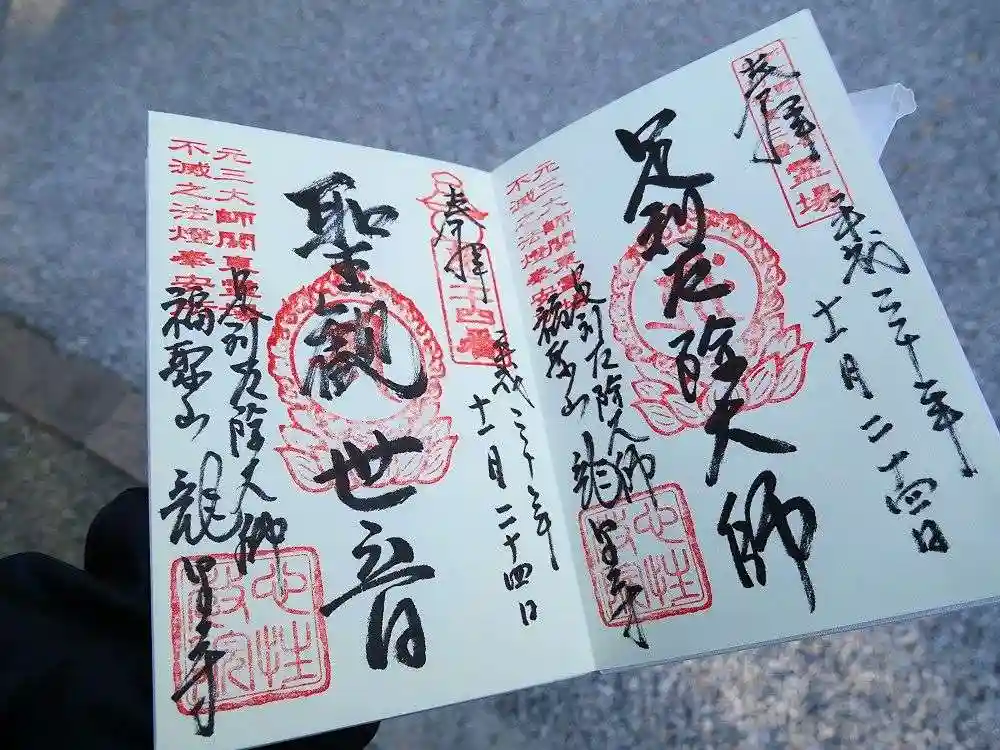 奉拝
霊場
平成三十年
十一月二十四日
足利厄除大師
元三大師
不滅之法燈奉安
足利厄除大師
福聚山 龍泉寺
奉拝
十四番
平成三十年
十一月二十四日
聖観世音
元三大師
不滅之法燈奉安
足利厄除大師
福聚山 龍泉寺
心性